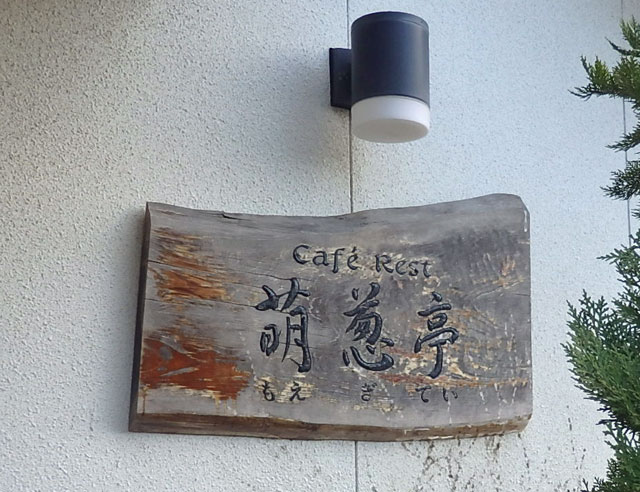 Café Rest
萌葱亭
もえぎてい